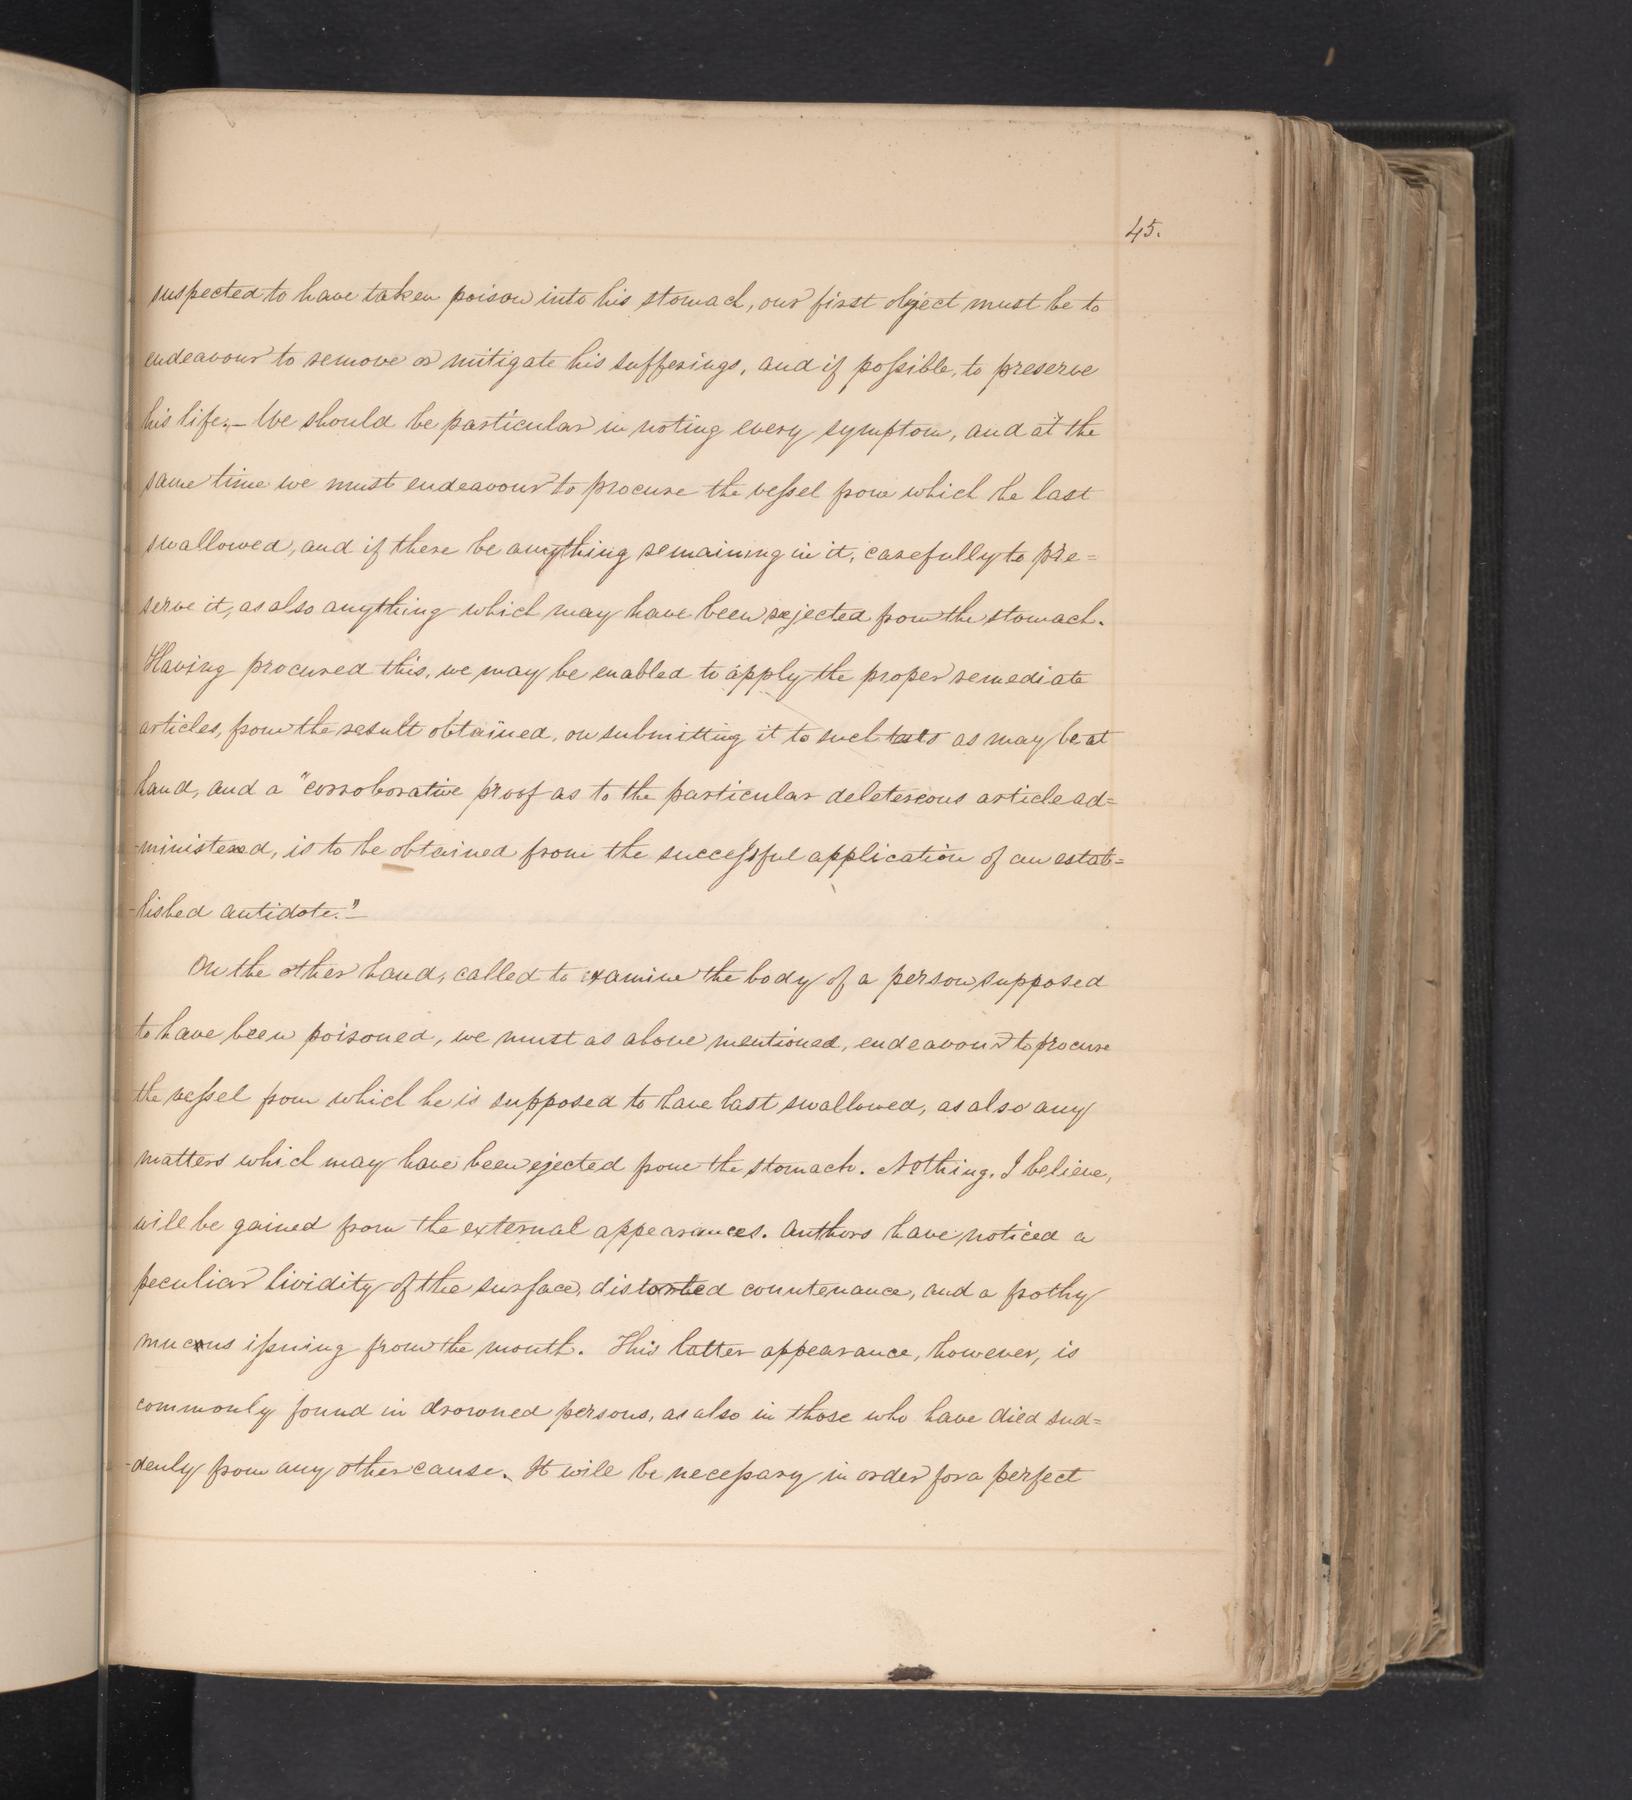 45.
suspected to have taken poison into his stomach, our first object must be to
endeavour to remove or mitigate his sufferings, and if possible, to preserve
his life;— We should be particular in noting every symptom, and at the
same time we must endeavour to procure the vessel from which he last
swallowed, and if there be anything remaining in it, carefully to pre=
serve it, as also anything which may have been rejected from the stomach.
Having procured this, we may be enabled to apply the proper remediate
articles, from the result obtained, on submitting it to such tests as may be at
hand, and a "corroborative proof as to the particular deletereous article ad=
-ministered, is to be obtained from the successful application of an estab=
-lished antidote."—
On the other hand, called to examine the body of a person supposed
to have been poisoned, we must as above mentioned, endeavour to procure
the vessel from which he is supposed to have last swallowed, as also any
matters which may have been ejected from the stomach. Nothing, I believe,
will be gained from the external appearances. Authors have noticed a
peculiar lividity of the surface, distorted countenance, and a frothy
mucous issuing from the mouth. This latter appearance, however, is
commonly found in drowned persons, as also in those who have died sud=
-denly from any other cause. It will be necessary in order for a perfect